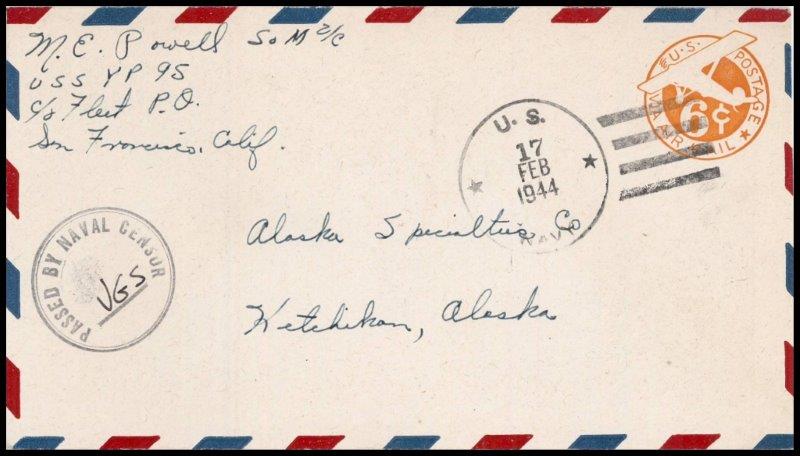 M. E. Powell SoM 2/C
USS YP 95
c/o Fleet P.O.
San Francisco, Calif.
U.S. POSTAGE
6¢
VIA AIR MAIL
U. S.
17
FEB
1944
NAVY
PASSED BY NAVAL CENSOR
VGS
Alaska Specialties Co
Ketchikan, Alaska